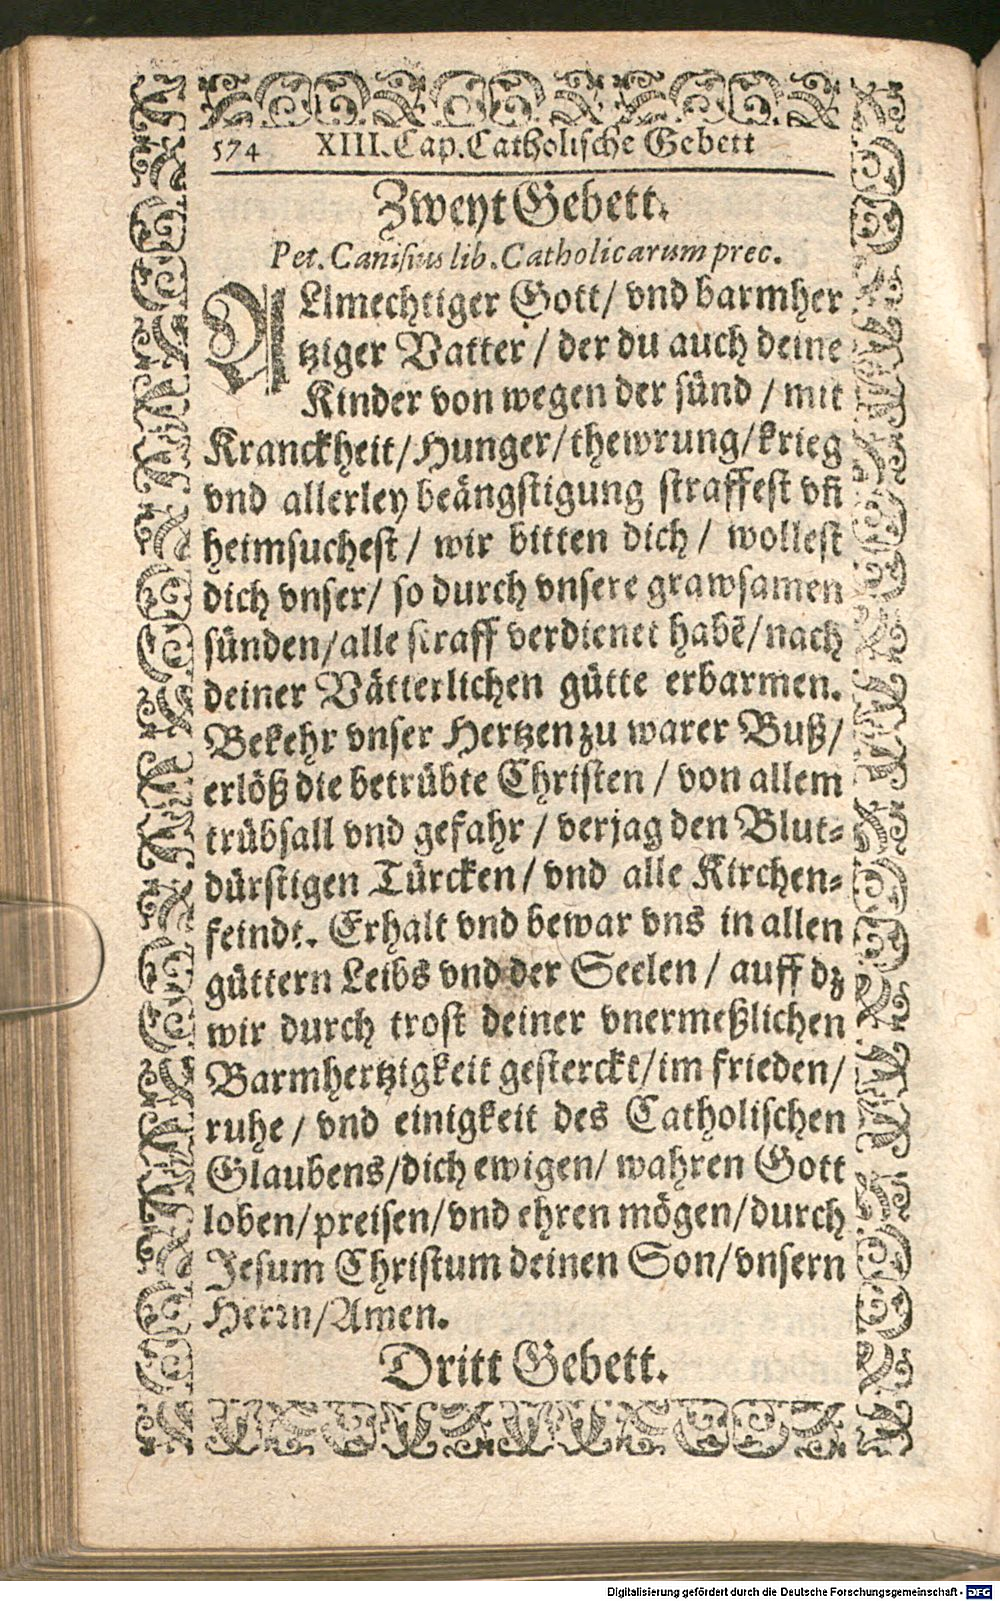 574 XIII. Cap. Catholische Gebett
Zweyt Gebett.
Pet. Canisius lib. Catholicarum prec.
ALlmechtiger Gott/ vnd barmher
tziger Vatter / der du auch deine
Kinder von wegen der sünd / mit
Kranckheit/Hunger/thewrung/krieg
vnd allerley beängstigung straffest vñ
heimsuchest / wir bitten dich / wollest
dich vnser/ so durch vnsere grawsamen
sünden/alle straff verdienet habē/nach
deiner Vätterlichen gütte erbarmen.
Bekehr vnser Hertzen zu warer Buß/
erlöß die betrübte Christen / von allem
trübsall vnd gefahr / verjag den Blut-
dürstigen Türcken / vnd alle Kirchen-
feindt. Erhalt vnd bewar vns in allen
güttern Leibs vnd der Seelen / auff dz
wir durch trost deiner vnermeßlichen
Barmhertzigkeit gesterckt/im frieden/
ruhe / vnd einigkeit des Catholischen
Glaubens/dich ewigen/ wahren Gott
loben/preisen/vnd ehren mögen/durch
Jesum Christum deinen Son/vnsern
Herrn/Amen.
Dritt Gebett.
Digitalisierung gefördert durch die Deutsche Forschungsgemeinschaft - DFG